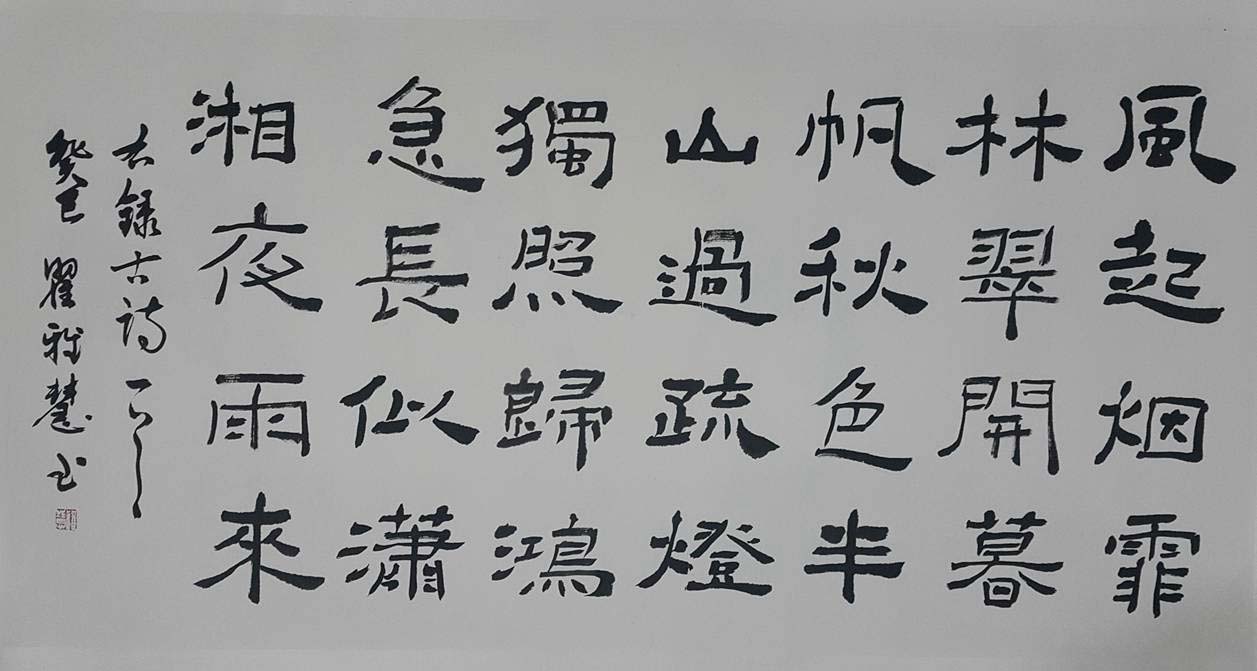 風起烟霏
林翠開暮
帆秋色半
山過疏燈
獨照歸鴻
急長似瀟
湘夜雨來
右録古詩一首
癸巳 瞿雅慧书